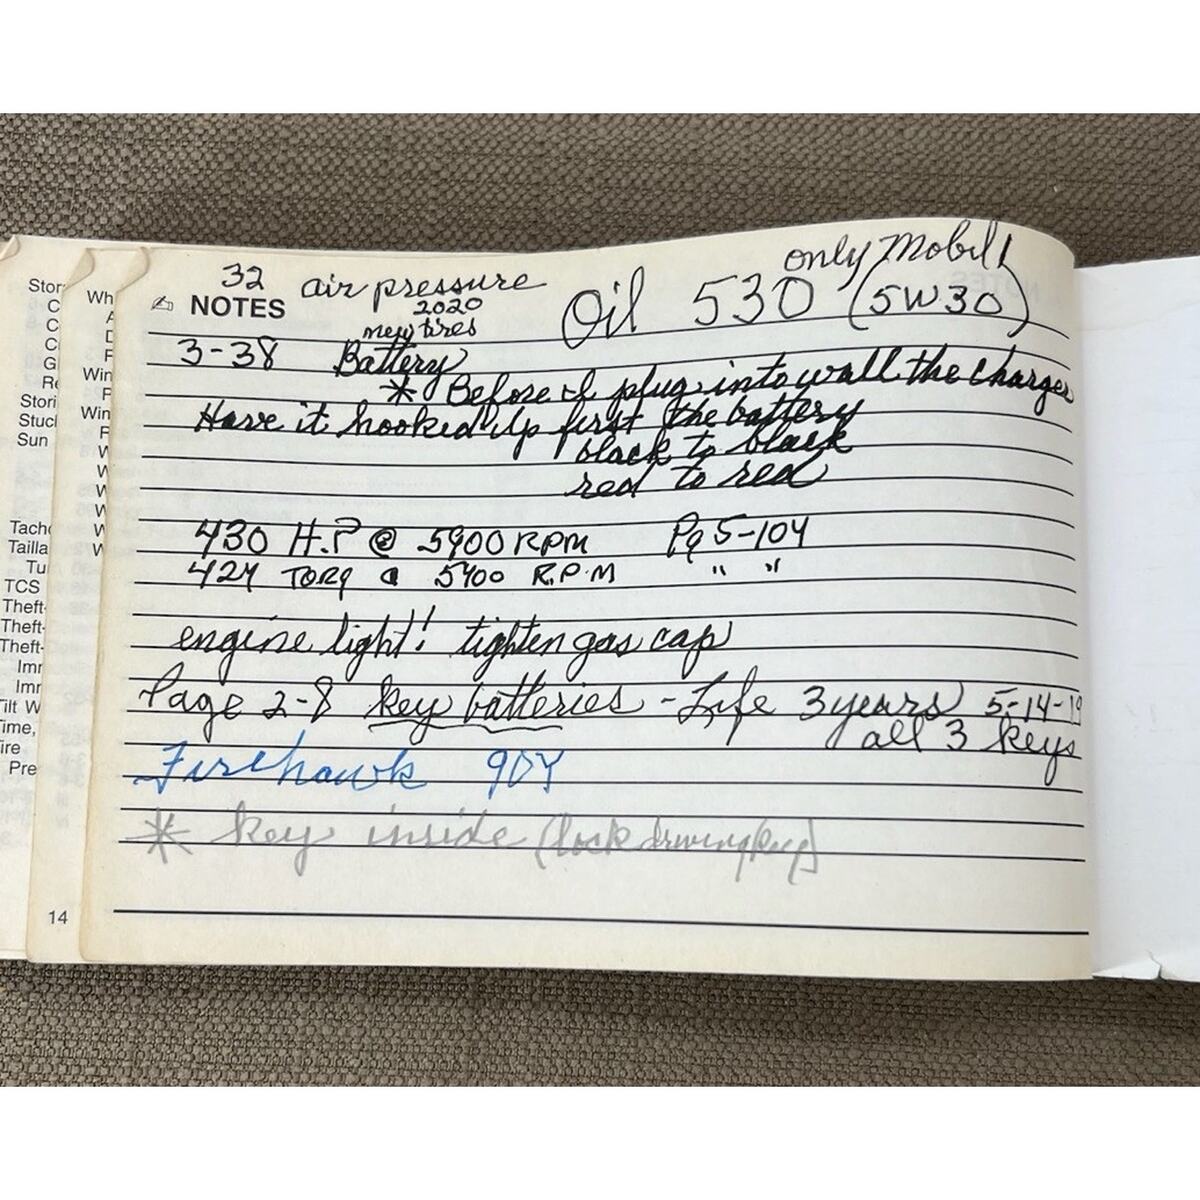 32 air pressure
only Mobil 1
NOTES
2020
new tires
Oil 530 (5W30)
3-38 Battery
* Before I plug into wall the charger
Have it hooked up first the battery
black to black
red to red
430 H.P @ 5900 RPM Pg 5-104
424 TORQ @ 5400 R.P.M " "
engine light! tighten gas cap
Page 2-8 key batteries - Life 3 years 5-14-19
all 3 keys
Firehawk 90Y
* key inside (lock driving key)
14
Stori
Stucl
Sun
Win
Win
Tach
Tailla
Tu
TCS
Theft-
Theft-
Theft-
Imr
Imr
Tilt W
Time,
Tire
Pre